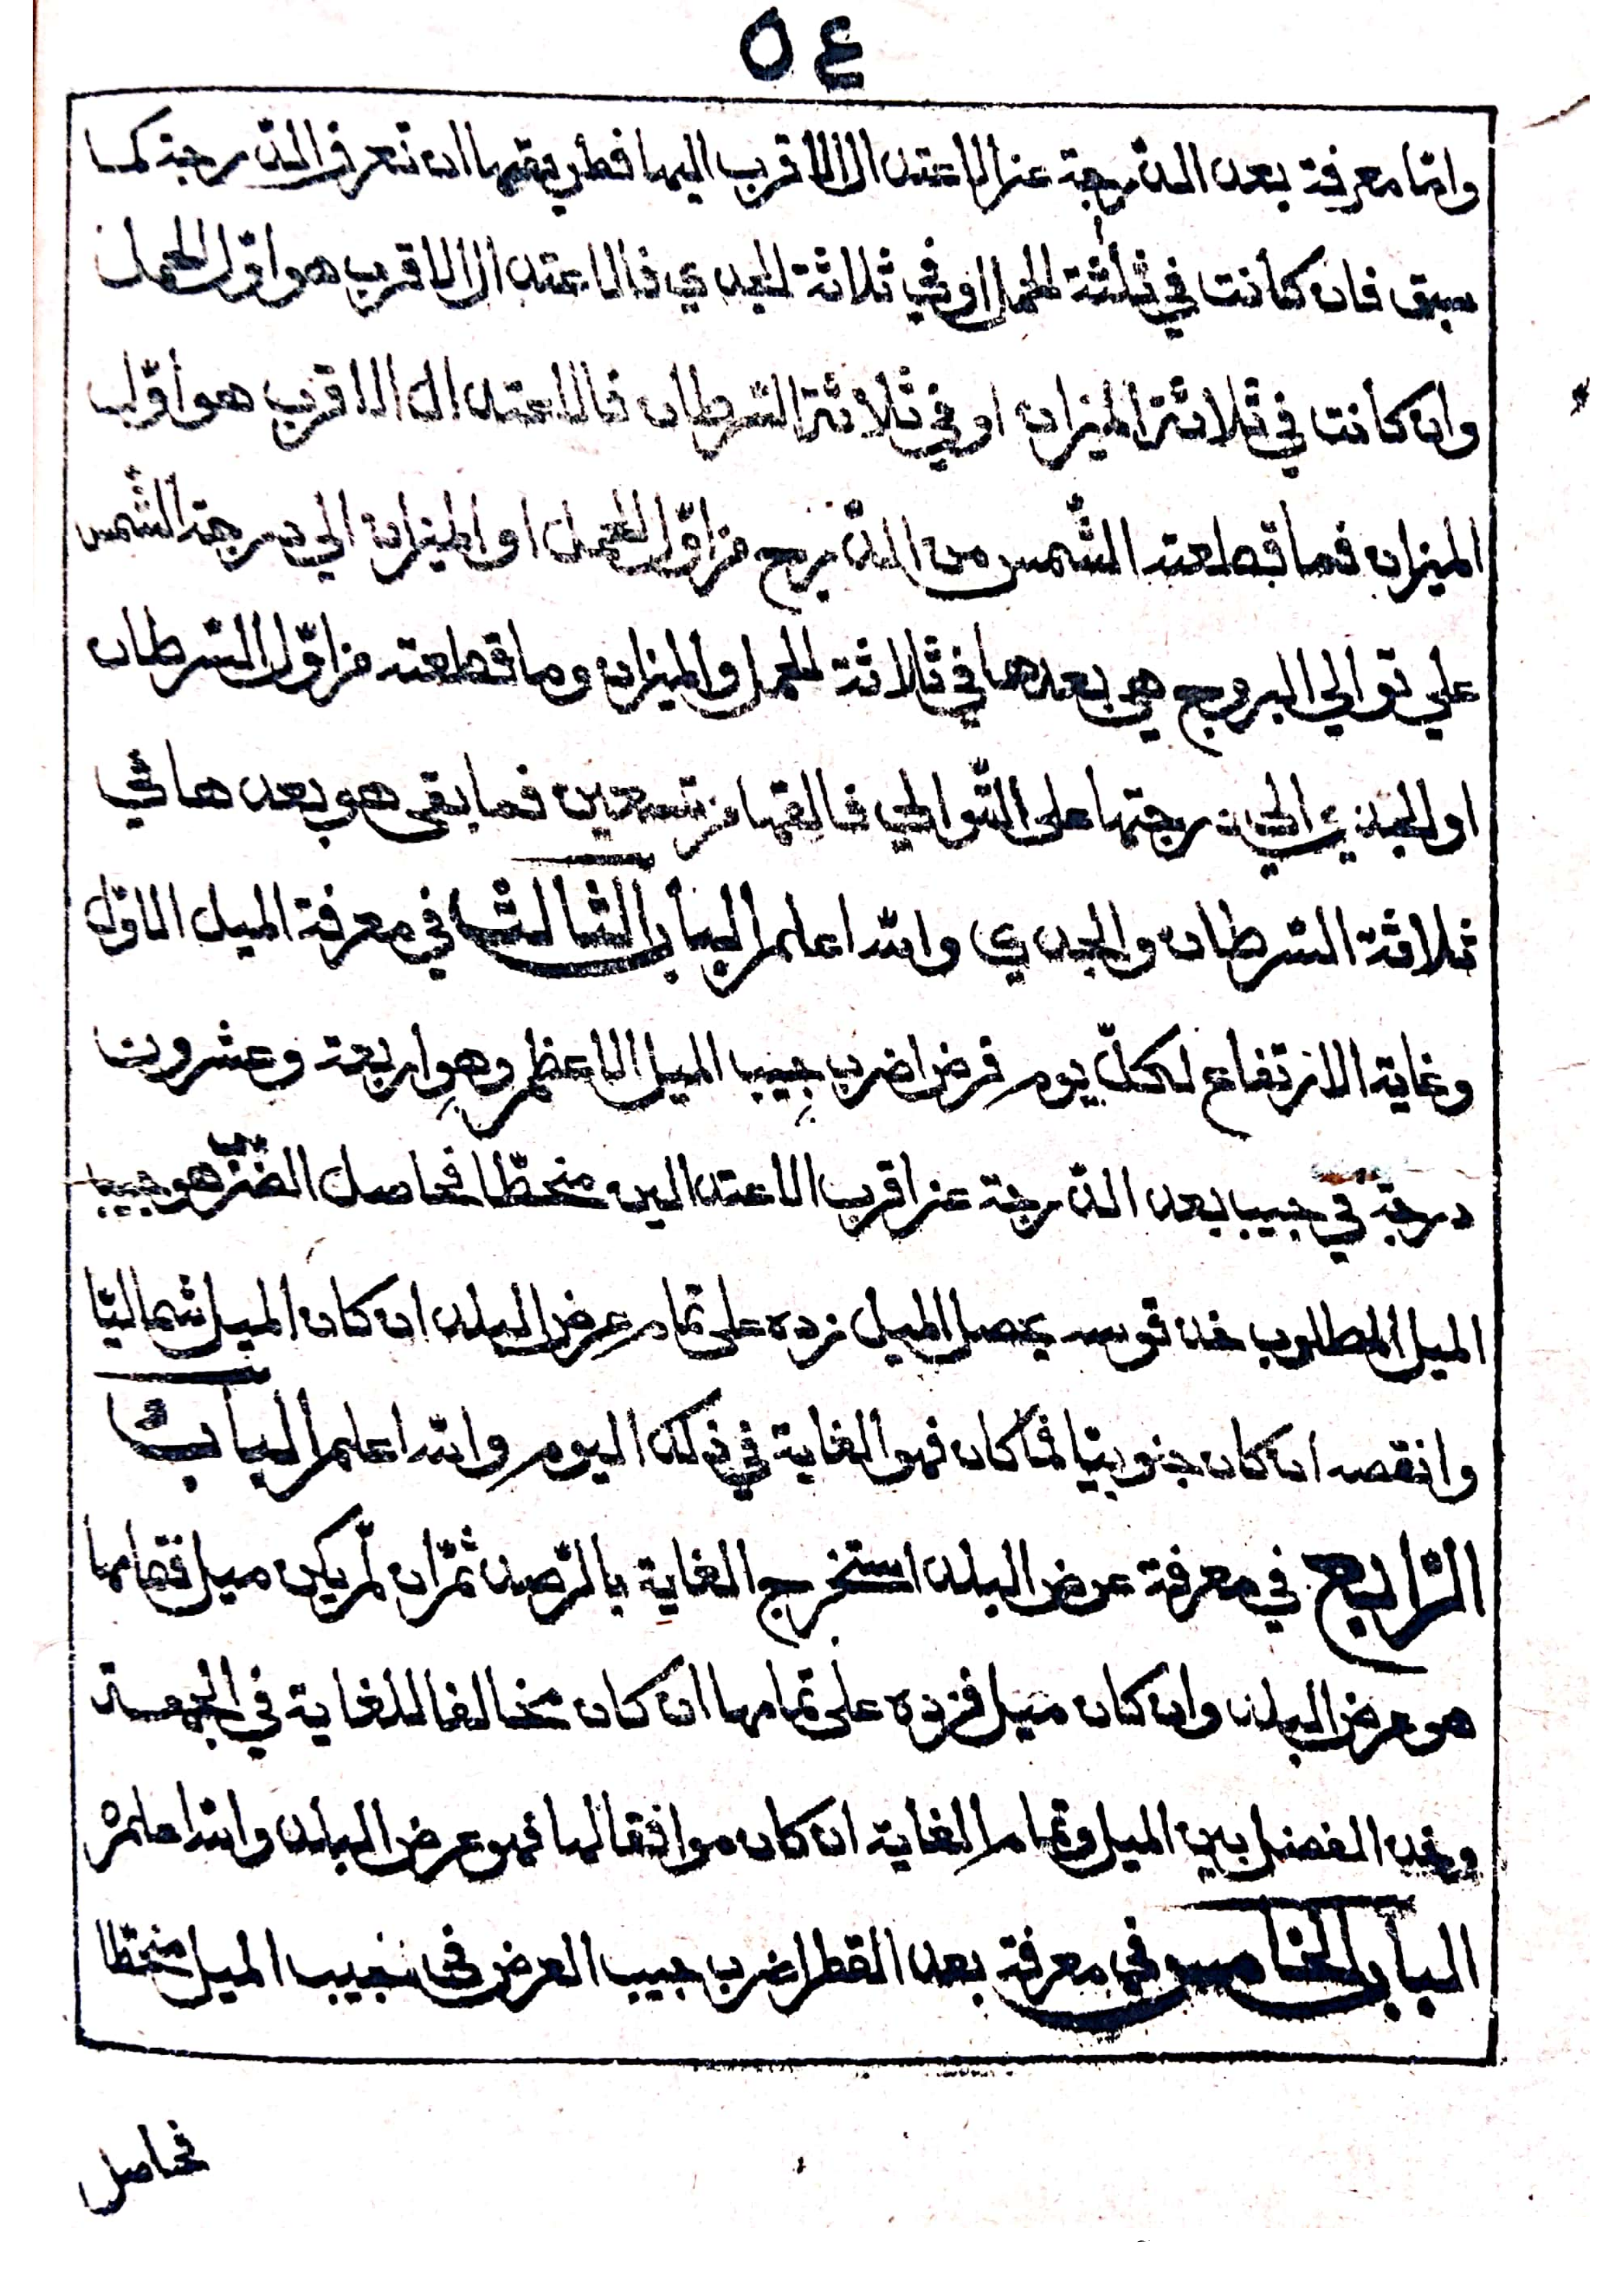 ٥٤
وامّا معرفة بعد الدّرجة عن الاعتدال الاقرب اليها فطريقها ان تعرف الدّرجة كما
سبق فان كانت في ثلاثة الحمل او في ثلاثة الجدي فالاعتدال الاقرب هو اوّل الحمل
وان كانت في ثلاثة الميزان او في ثلاثة السّرطان فالاعتدال الاقرب هو اوّل
الميزان فما قطعته الشّمس من الدّرج من اوّل الحمل او الميزان الي درجة الشّمس
علي توالي البروج هي بعدها في ثلاثة الحمل والميزان وما قطعته من اوّل السّرطان
او الجدي الي درجتها على التّوالي فالقها من تسعين فما بقى هو بعدها في
ثلاثة السّرطان والجدي والله اعلم الباب الثالث في معرفة الميل الاوّل
وغاية الارتفاع لكلّ يوم فرض اضرب جيب الميل الاعظم وهو اربعة وعشرون
درجة في جيب بعد الدّرجة عن اقرب الاعتدالين منحطّا فحاصل الضّرب هو جيب
الميل المطلوب خذ قوسه يحصل الميل زده على تمام عرض البلد ان كان الميل شماليّا
وانقصه ان كان جنوبيّا فما كان فهو الغاية في ذلك اليوم والله اعلم الباب
الرّابع في معرفة عرض البلد استخرج الغاية بالرّصد ثمّ ان لم يكن ميل فتمامها
هو عرض البلد وان كان ميل فزده على تمامها ان كان مخالفا للغاية في الجهة
وخذ الفضل بين الميل وتمام الغاية ان كان موافقا لها فهو عرض البلد والله اعلم
الباب الخامس في معرفة بعد القطر اضرب جيب العرض في جيب الميل منحطّا
فحاصل